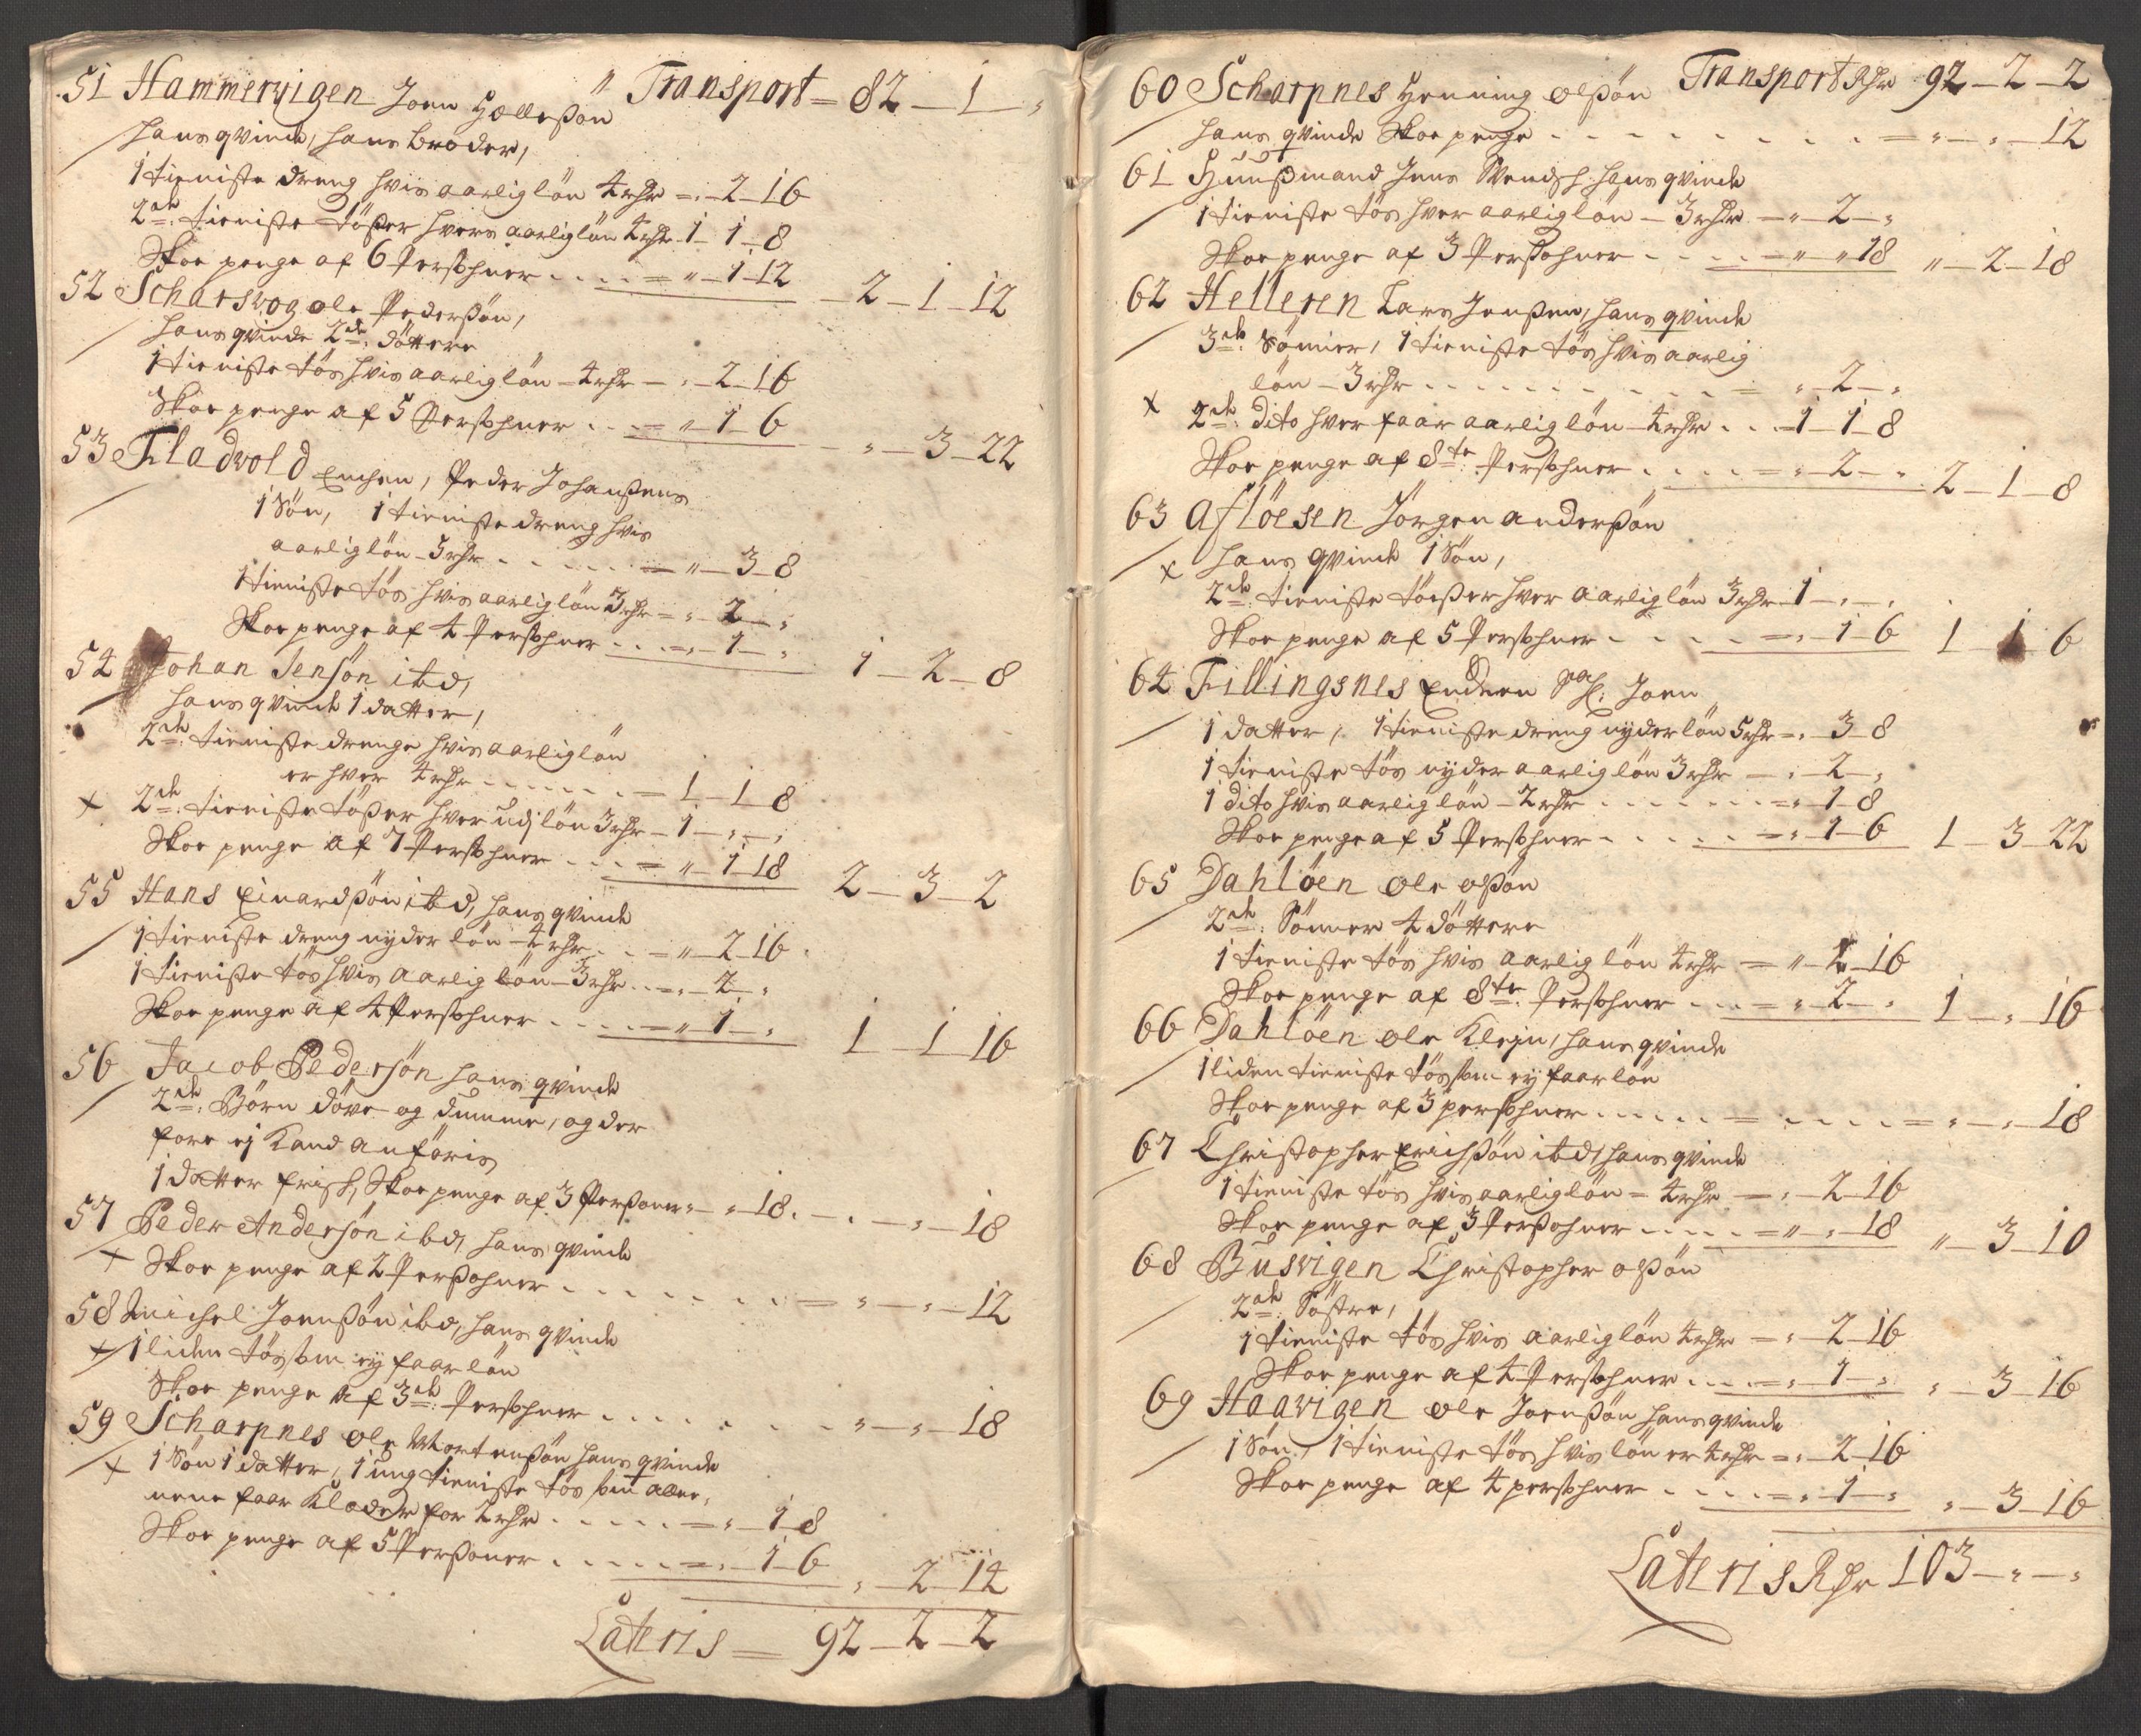 " Transport = 82 — 1 — "
51 Hammervigen Joen Hollesøn
hans qvinde, hans broder,
1 tieniste dreng hvis aarlig løn 4 rdr = " — 2 — 16
2de: tieniste tøßer hvers aarlig løn 4 rdr 1 — 1 — 8
Skoe penge af 6 Persohner .... = " — 1 — 12 — 2 — 1 — 12
52 Scharsvog ole Pedersøn,
hans qvinde 2de: døttere
1 tieniste tøs hvis aarlig løn — 4 rdr — " — 2 — 16
Skoe penge af 5 Persohner ... = " 1 — 6 " — 3 — 22
53 Fladvold Enchen, Peder Johanßens
1 Søn, 1 tieniste dreng hvis
aarlig løn — 5 rdr ...... = " — 3 — 8
1 tieniste tøs hvis aarlig løn 3 rdr = " — 2 — "
Skoe penge af 4 Persohner ... = " — 1 — " 1 — 2 — 8
54 Johan Jensøn ibd,
hans qvinde 1 datter,
2de: tieniste drenge hvis aarlig løn
er hver 4 rdr ...... = 1 — 1 — 8
x 2de: tieniste tøßer hver udj løn 3 rdr — 1 — " — "
Skoe penge af 7 Persohner .... = " — 1 — 18 2 — 3 — 2
55 Hans Einardsøn ibd, hans qvinde
1 tieniste dreng nyder løn — 4 rdr .. = " — 2 — 16
1 tieniste tøs hvis aarlig løn — 3 rdr ... = " — 2 — "
Skoe penge af 4 Persohner .... = " 1 — " 1 — 1 — 16
56 Jacob Pedersøn hans qvinde
2de: Børn døve og dumme, og der
fore ej Kand anføris
1 datter frisk, Skoe penge af 3 Persohner " — " 18 . — . — " — 18
57 Peder Andersøn ibd, hans qvinde
x Skoe penge af 2 Persohner ....... = " — " — 12
58 Michel Joensøn ibd, hans qvinde
x 1 liden tøs som ej faar løn
Skoe penge af 3de: Persohner ....... " — " — 18
59 Scharpnes ole Mortensøn hans qvinde
x 1 Søn 1 datter, 1 ung tieniste tøs som allee¬
nene faar Klæder for 2 rdr ..... = " — 1 — 8
Skoe penge af 5 Persohner ..... = " — 1 — 6 " — 2 — 14
Lateris = 92 — 2 — 2
Transport Rdr 92 — 2 — 2
60 Scharpnes Henning olßøn
hans qvinde Skoe penge ........ = " — " — 12
61 Huusmand Jens Svendß. hans qvinde
1 tieniste tøs hver aarlig løn — 3 rdr — " — 2 — "
Skoe penge af 3 Persohner ..... = " — " 18 " — 2 — 18
62 Helleren Lars Jensen, hans qvinde
3de: Sønner, 1 tieniste tøs hvis aarlig
løn — 3 rdr .......... = " — 2 — "
x 2de: dito hver faar aarlig løn — 4 rdr .. — 1 — 1 — 8
Skoe penge af 8te: Persohner ..... = " — 2 — " 2 — 1 — 8
63 Afløesen Jørgen andersøn
x hans qvinde 1 Søn,
2de: tieniste tøeßer hver aarlig løn 3 rdr — 1 — " — "
Skoe penge af 5 Persohner ..... = " — 1 — 6 1 — 1 — 6
64 Fillingsnes Endren Joen
1 datter, 1 tieniste dreng nyder løn 5 rdr = " 3 — 8
1 tieniste tøs nyder aarlig løn 3 rdr — " — 2 — "
1 dito hvis aarlig løn — 2 rdr ....... = " 1 — 8
Skoe penge af 5 Persohner ...... = " 1 — 6 1 — 3 — 22
65 Dahløen ole olßøn
2de: Sønner 4 døttere
1 tieniste tøs hvis aarlig løn 4 rdr — " — 2 — 16
Skoe penge af 8te: Persohner .... = " — 2 — " 1 — " — 16
66 Dahløen ole Klejn, hans qvinde
1 liden tieniste tøs som ej faar løn
Skoe penge af 3 persohner ..... = .... = " — " — 18
67 Christopher Erichsøn ibd, hans qvinde
1 tieniste tøs hvis aarlig løn — 4 rdr — " — 2 — 16
Skoe penge af 3 Persohner ..... = " — " — 18 " — 3 — 10
68 Busvigen Christopher olßøn
2de: Søstre,
1 tieniste tøs hvis aarlig løn 4 rdr — " — 2 — 16
Skoe penge af 4 Persohner .... = " — 1 — " " — 3 — 16
69 Haavigen ole Joensøn hans qvinde
1 Søn, 1 tieniste tøs hvis løn er 4 rdr = " — 2 — 16
Skoe penge af 4 persohner ..... = " — 1 — " " — 3 — 16
Lateris Rdr 103 — " — "